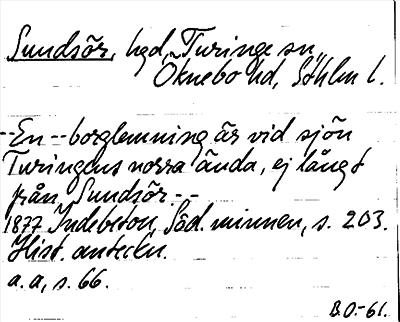 Sundsör, hgd, Turinge sn,
Öknebo hd, Söhlm l.
--En--borglemning är vid sjön
Turingens norra ända, ej långt
från Sundsör.--
1877 Indebetou, Söd. minnen, s. 203.
Hist. anteckn.
a.a, s. 66.
B.O.-61.